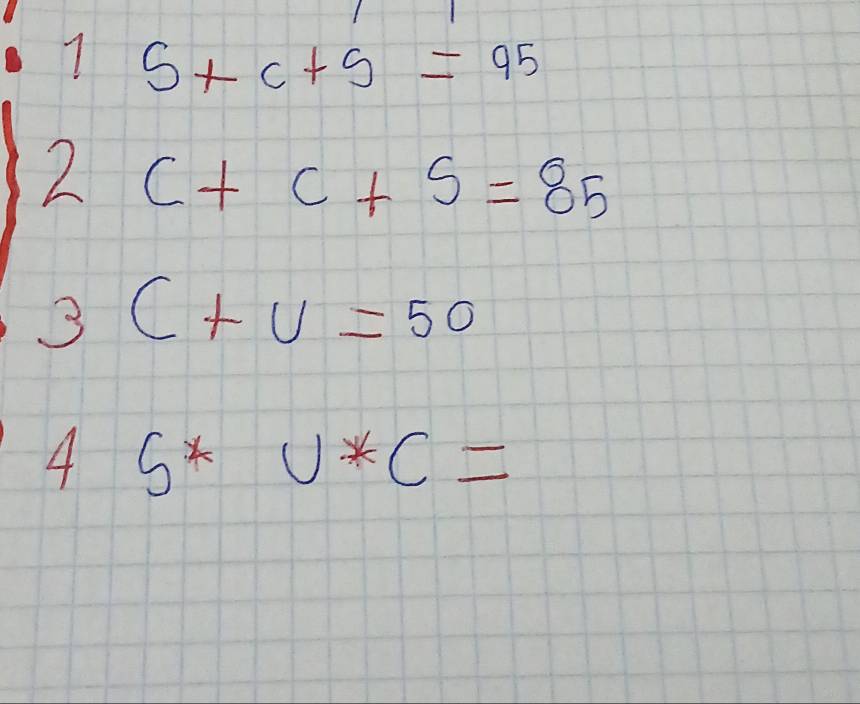 1 S + c + S = 95
2 C + c + S = 85
3 C + U = 50
4 S* U * C =